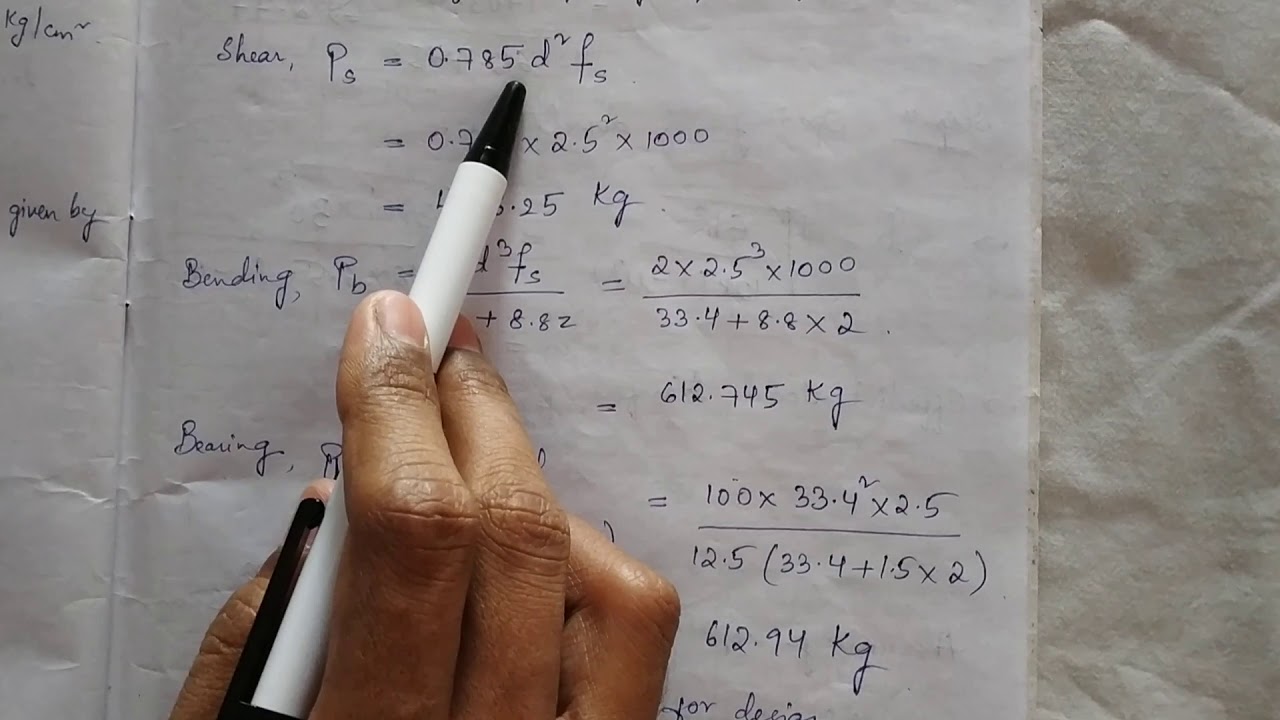 Kg/cm²
Shear, Ps = 0.785 d² fs
= 0.7 x 2.5² x 1000
= .25 Kg.
given by
Bending, Pb = d³fs / + 8.8z = 2 x 2.5³ x 1000 / 33.4 + 8.8 x 2.
= 612.745 Kg
Bearing,
= 100 x 33.4² x 2.5 / 12.5 (33.4 + 1.5 x 2)
612.94 Kg
for design